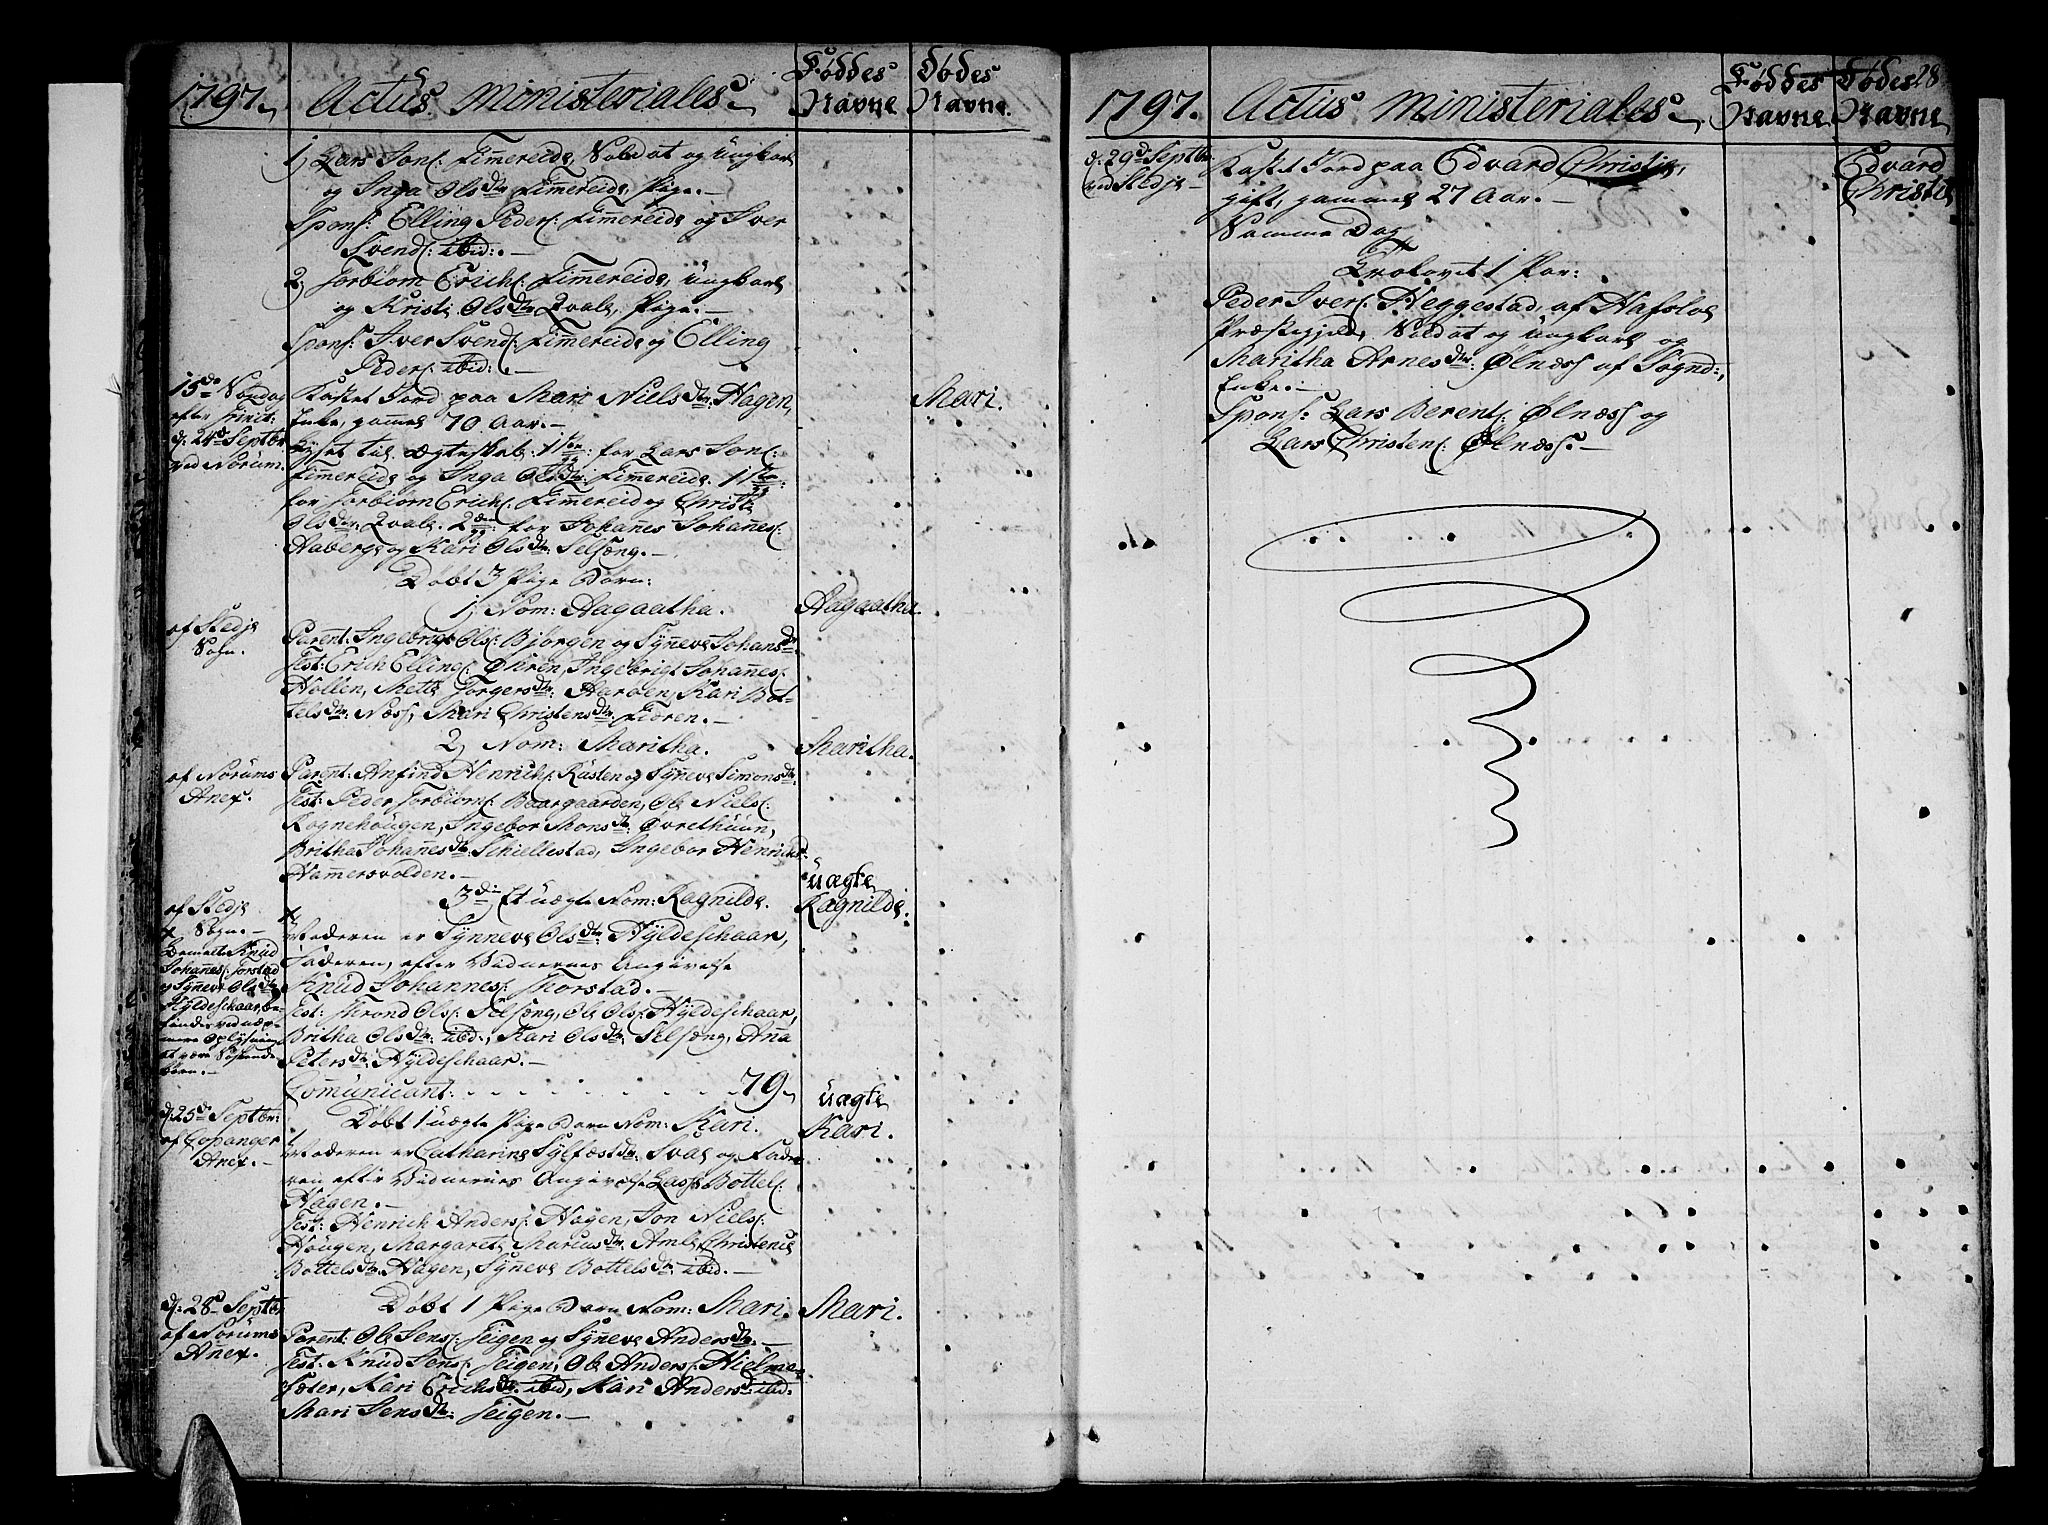 1797.
Actus ministeriales
Føddes
Navne
Dødes
Navne.
1, Lars Jons: Fimereide, Soldat og Ungkarl
og Inga Ols dtr: Fimereide, Pige.
Spons: Elling Peders: Fimereide og Iver
Svends: ibid:.
2, Torbiörn Erichs: Fimereide, Ungkarl
og Kristi Ols dtr: Qvale, Pige.
Spons: Iver Svends: Fimereide og Elling
Peders: ibid:.
15de Söndag
efter Trinit:
d: 24de Septbr
ved Norum.
Kastet Jord paa Mari Niels dtr: Hagen,
Enke, gamel 70 Aar.
Mari.
Lyset til Ægteskab: 1 for Lars Jons:
Fimereide og Inga Ols dtr: Fimereide. 1
for Torbiörn Erichs: Fimereide og Christi
Ols dtr: Qvale. 2 for Johannes Johannes:
Aaberge og Kari Ols dtr: Selseng.
Døbt 3 Pige Börn:
1, Nom: Aagaatha.
Aagaatha.
af Stedje
Sogn.
Parent: Ingebrigt Ols: Bjorgen og Synneve Johans dtr
Test: Erich Ellings: Øhren, Ingebrigt Johannes:
Hollen, Mette Torgers dtr: Aaröen, Kari Bot-
tels dtr: Næss, Mari Christens dtr: Fiæren.
2, Nom: Maritha.
Maritha.
af Norums
Anex.
Parent: Anfind Henrichs: Rusten og Synneve Simons dtr
Test: Peder Torbiörns: Baargaarden, Ole Niels:
Rognehougen, Ingebor Mons dtr: Øvrethuun,
Britha Johannes dtr: Schiellestad, Ingebor Henrichs
Hammersvolden.
3die Et uægte Nom: Ragnilde.
uægte
Ragnilde.
af Stedje
Sogn.
Bemelte Knud
Johannes: Torstad
og Synneve Ols dtr
Hyldeschaar, be-
findes ved nær-
mere Oplysning
at være Söskende
börn.
Moderen er Synneve Ols dtr: Hyldeschaar,
Faderen, efter Vidnernes Angivelse
Knud Johannes: Thorstad.
Test: Thrond Ols: Selseng, Ole Ols: Hyldeschaar,
Britha Ols dtr: ibid., Kari Ols dtr: Selseng, Anna
Peters dtr: Hyldeschaar.
Comunicant: 79
d: 25de Septbr:
af Copanger
Anex.
Døbt 1 uægte Pige Barn Nom: Kari.
uægte
Kari.
Moderen er Catharine Sylfæst dtr: Svae og Fade-
ren efter Vidnernes Angivelse Lasse Bottels:
Hagen.
Test: Henrich Anders: Hagen, Jon Niels:
Hougen, Margarete Marcus dtr: Amle, Christence
Bottels dtr: Hagen, Synneve Bottels dtr: ibid.
d: 28de Septbr
af Norums
Anex.
Døbt 1 Pige Barn Nom: Mari.
Mari.
Parent: Ole Jens: Teigen og Synneve Anders dtr:
Test: Knud Jens: Teigen, Ole Anders: Hielme-
sæter, Kari Erichs dtr: ibid, Kari Anders dtr: ibid.
Mari Jens dtr: Teigen.
1797.
Actus ministeriales
Føddes
Navne
Dødes
Navne
28
d: 29de Septbr
ved Stedje
Kastet Jord paa Edvard Christie,
gift, gammel 27 Aar.
Edvard
Christie
Samme Dag
Trolovet 1 Par:
Peder Ivers: Heggestad, af Hafsloe
Præstegjeld, Soldat og Ungkarl og
Maritha Arnes dtr: Ølnæss af Sognd:,
Enke.
Spons: Lars Berents: Ølnæss og
Lars Christens: Ølnæss.